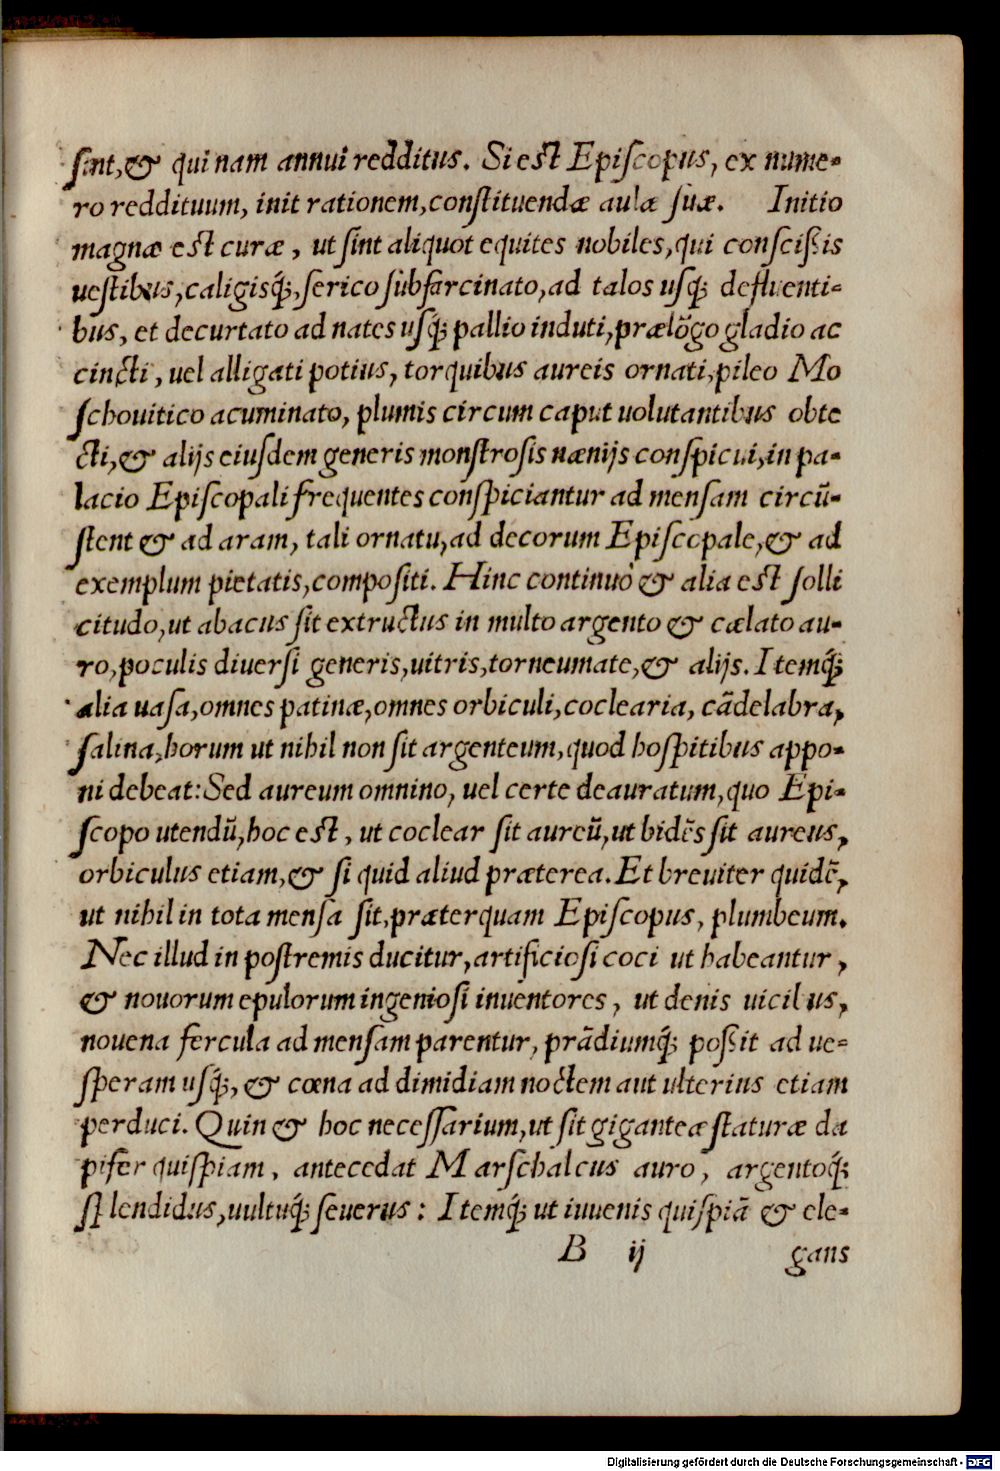 sint, & quinam annui redditus. Si est Episcopus, ex nume-
ro reddituum, init rationem, constituendæ aulæ suæ. Initio
magnæ est curæ, ut sint aliquot equites nobiles, qui conscißis
uestibus, caligisq́;, serico subfarcinato, ad talos usq́; defluenti-
bus, et decurtato ad nates usq́; pallio induti, prælõgo gladio ac
cincti, uel alligati potius, torquibus aureis ornati, pileo Mo
schouitico acuminato, plumis circum caput uolutantibus obte
cti, & alijs eiusdem generis monstrosis nænijs conspicui, in pa-
lacio Episcopali frequentes conspiciantur ad mensam circũ-
stent & ad aram, tali ornatu, ad decorum Episcopale, & ad
exemplum pietatis, compositi. Hinc continuò & alia est solli
citudo, ut abacus sit extructus in multo argento & cælato au-
ro, poculis diuersi generis, uitris, torneumate, & alijs. Itemq́;
alia uasa, omnes patinæ, omnes orbiculi, coclearia, cãdelabra,
salina, horum ut nihil non sit argenteum, quod hospitibus appo-
ni debeat: Sed aureum omnino, uel certe deauratum, quo Epi-
scopo utendũ, hoc est, ut coclear sit aureũ, ut bidẽs sit aureus,
orbiculus etiam, & si quid aliud præterea. Et breuiter quidẽ,
ut nihil in tota mensa sit, præterquam Episcopus, plumbeum.
Nec illud in postremis ducitur, artificiosi coci ut habeantur,
& nouorum epulorum ingeniosi inuentores, ut denis uicibus,
nouena fercula ad mensam parentur, prãdiumq́; poßit ad ue-
speram usq́;, & cœna ad dimidiam noctem aut ulterius etiam
perduci. Quin & hoc necessarium, ut sit giganteæ staturæ da
pifer quispiam, antecedat Marschalcus auro, argentoq́;
splendidus, uultuq́; seuerus: Itemq́; ut iuuenis quispiã & ele-
B ij gans
Digitalisierung gefördert durch die Deutsche Forschungsgemeinschaft - DFG